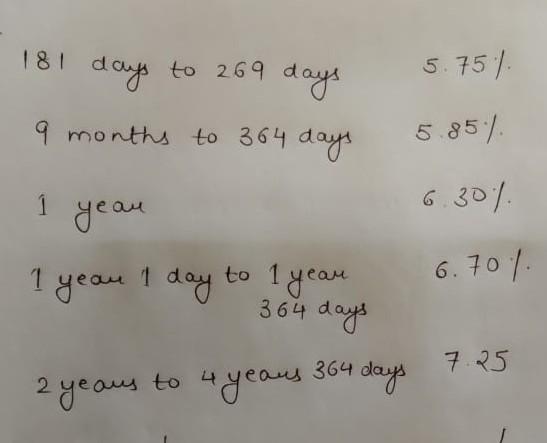 181 days to 269 days 5.75%.
9 months to 364 days 5.85%.
1 year 6.30%.
1 year 1 day to 1 year 6.70%.
364 days
2 years to 4 years 364 days 7.25